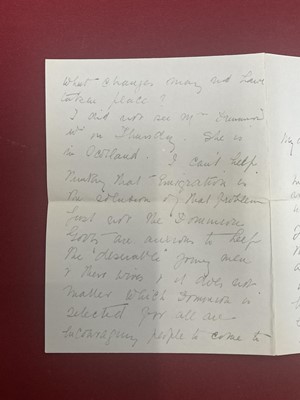 What changes may not have
taken place?
I did not see Mrs Drummond
on Thursday. She is
in Scotland. I can't help
thinking that Emigration is
the solution of that problem
just now the Dominion
Govts are anxious to help
the "desirable" young men
& their wives & it does not
matter which Dominion is
selected for all are
encouraging people to come to